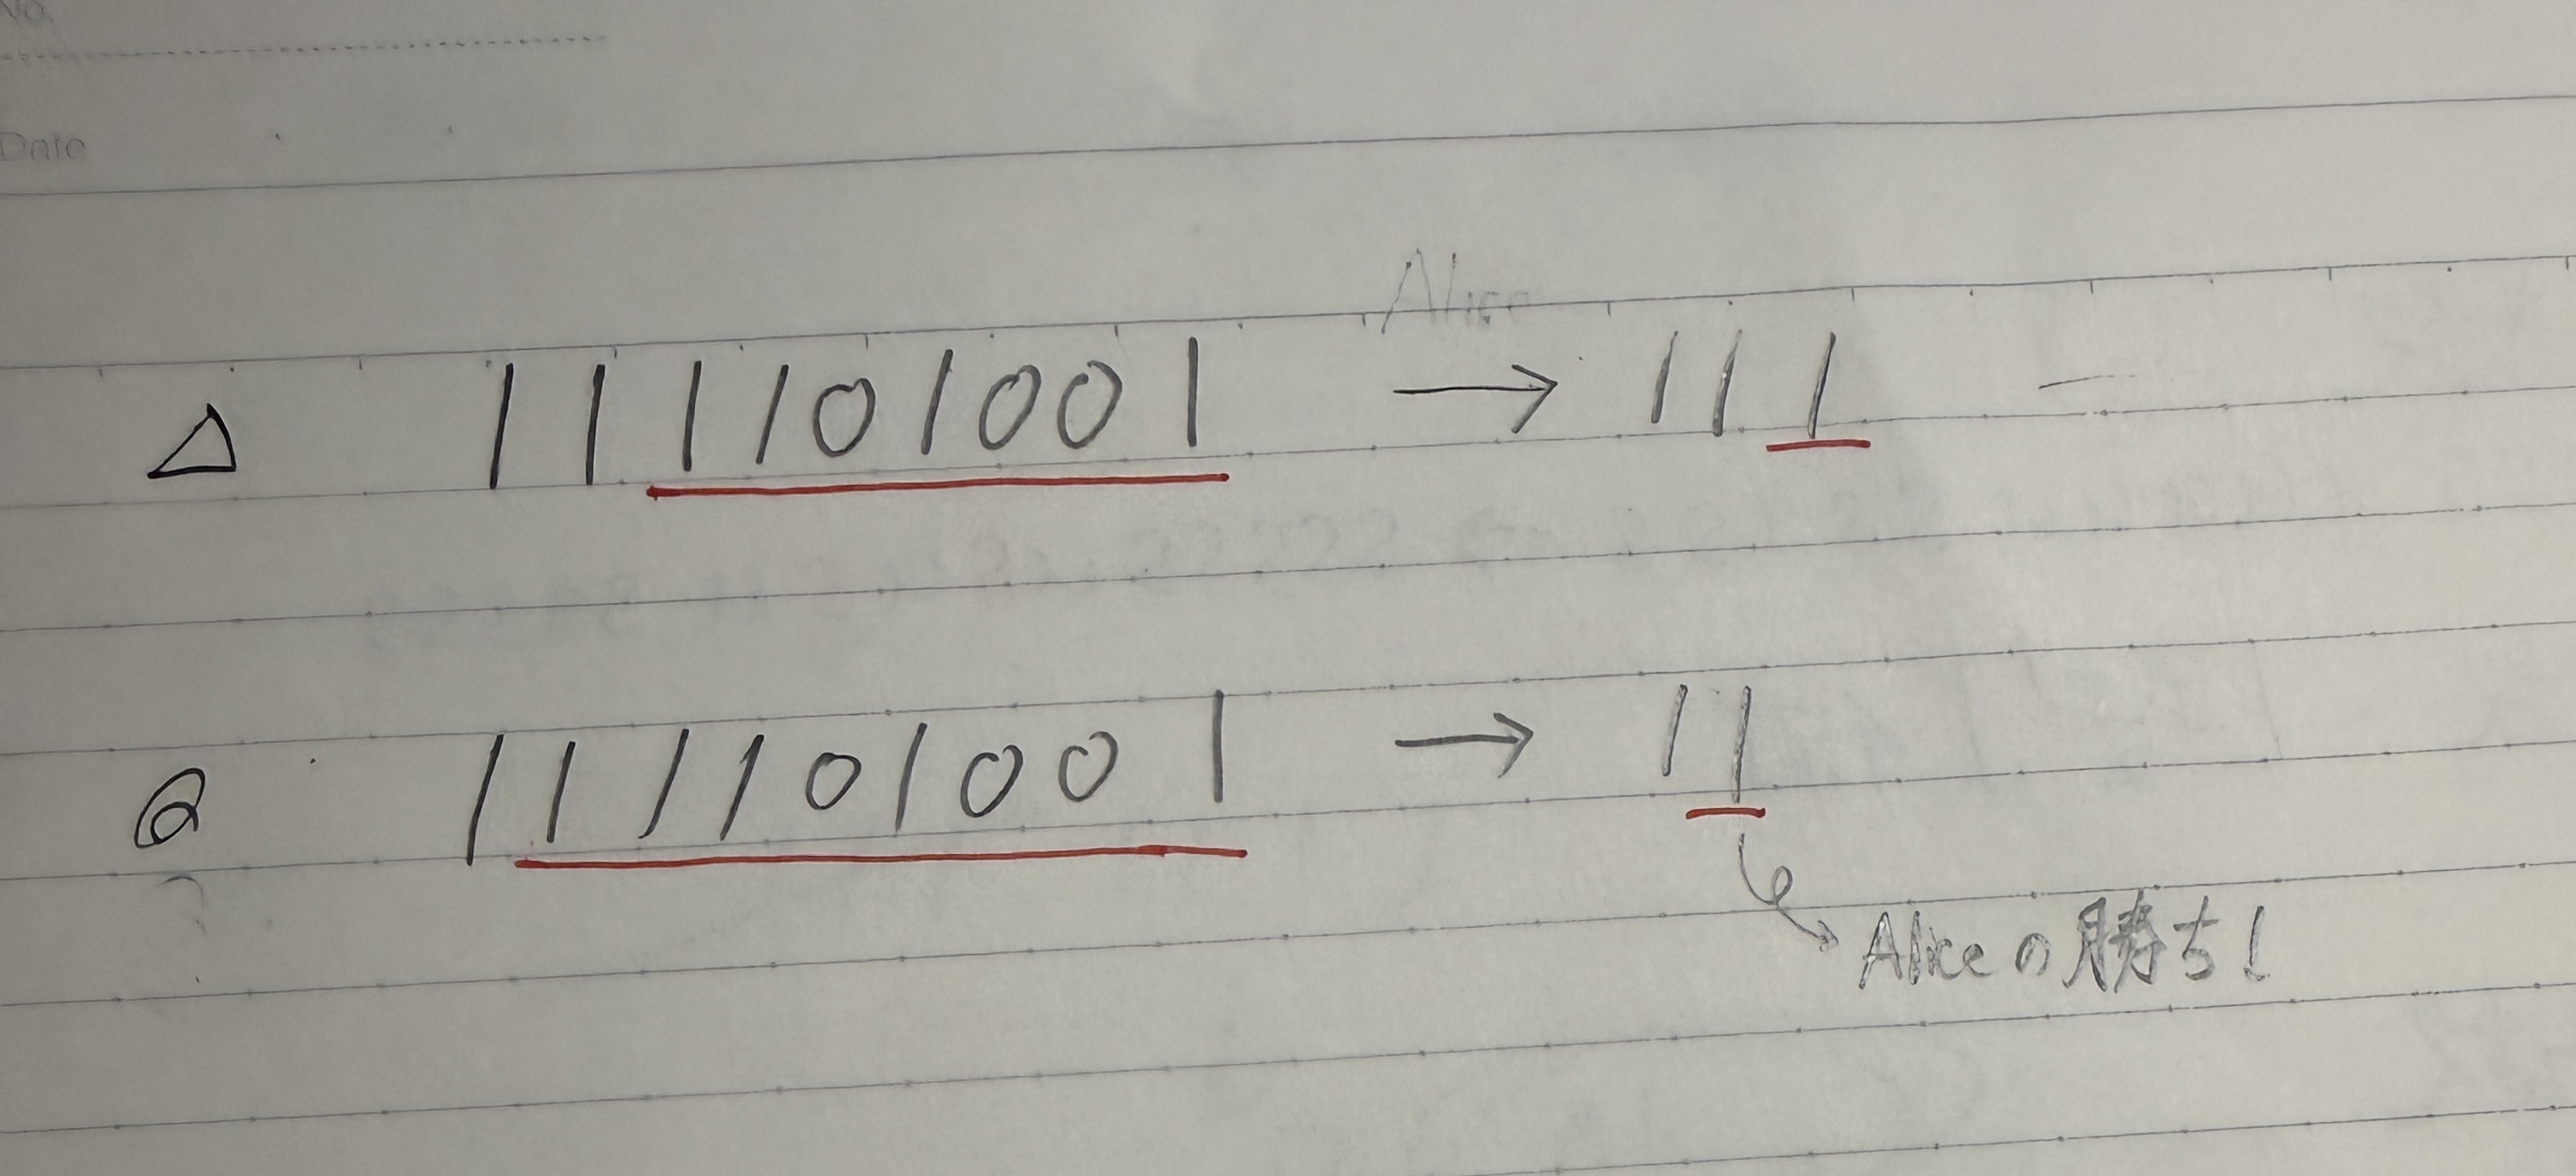 No.
Date
Alice
△ 111101001 → 111 —
◎ 111101001 → 11
Aliceの勝ち!